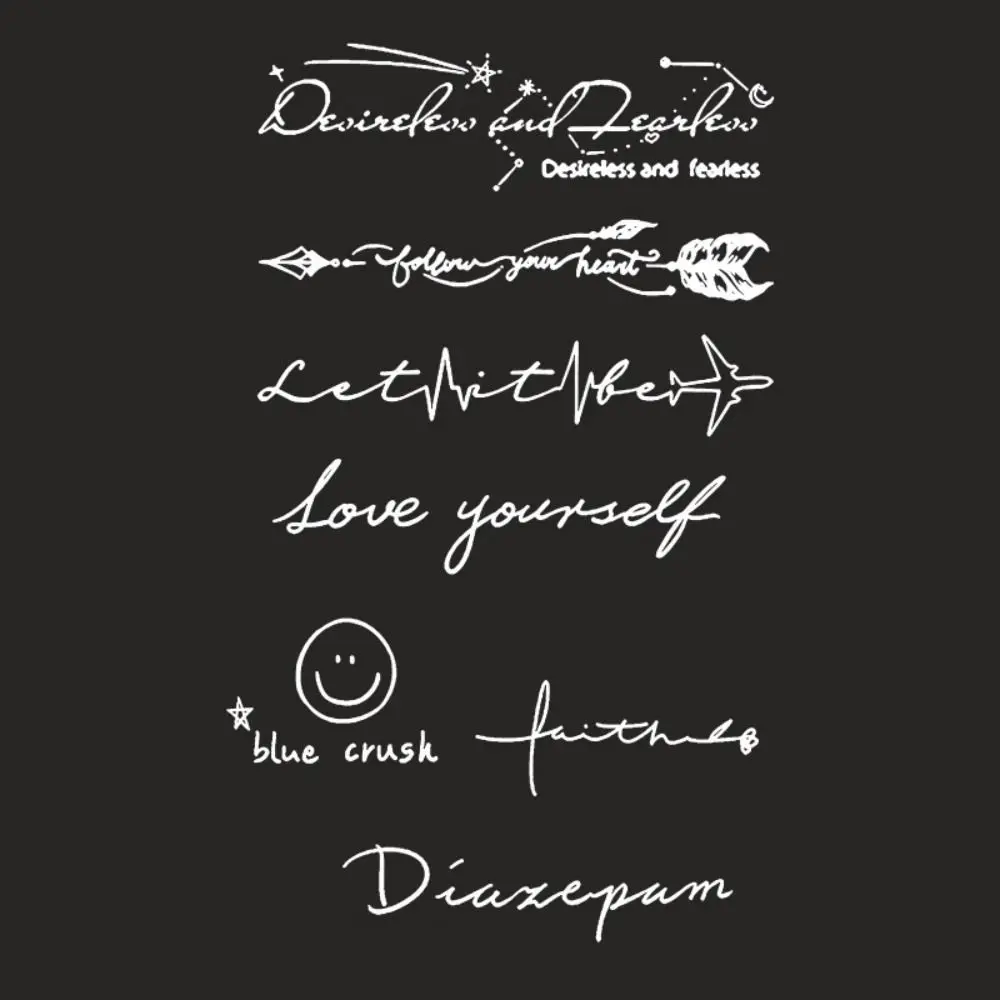 Desireless and Fearless
Desireless and fearless
follow your heart
Let it be
Love yourself
blue crush
faith
Diazepam